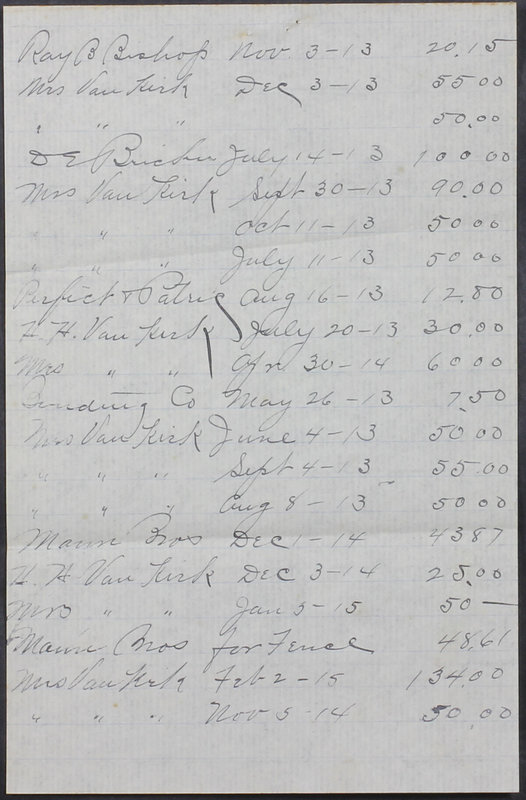 Ray B Bishop Nov. 3-13 20.15
Mrs Van Kirk Dec 3-13 55 00
" " " 50.00
D E July 14-13 100.00
Mrs Van Kirk Sept 30-13 90.00
" " " Oct 11-13 50 00
" " " July 11-13 50 00
Perfict & Aug 16-13 12.80
H. H. Van Kirk July 20-13 30.00
Mrs " " 30-14 60 00
Co May 26-13 7.50
Mrs Van Kirk June 4-13 50.00
" " " Sept 4-13 55.00
" " " Aug 8-13 50 00
Bros Dec 1-14 43 87
H. H. Van Kirk Dec 3-14 25.00
Mrs " " Jan 5-15 50 —
Bros for Fence 48.61
Mrs Van Kirk Feb 2-15 134.00
" " " Nov 5-14 50.00